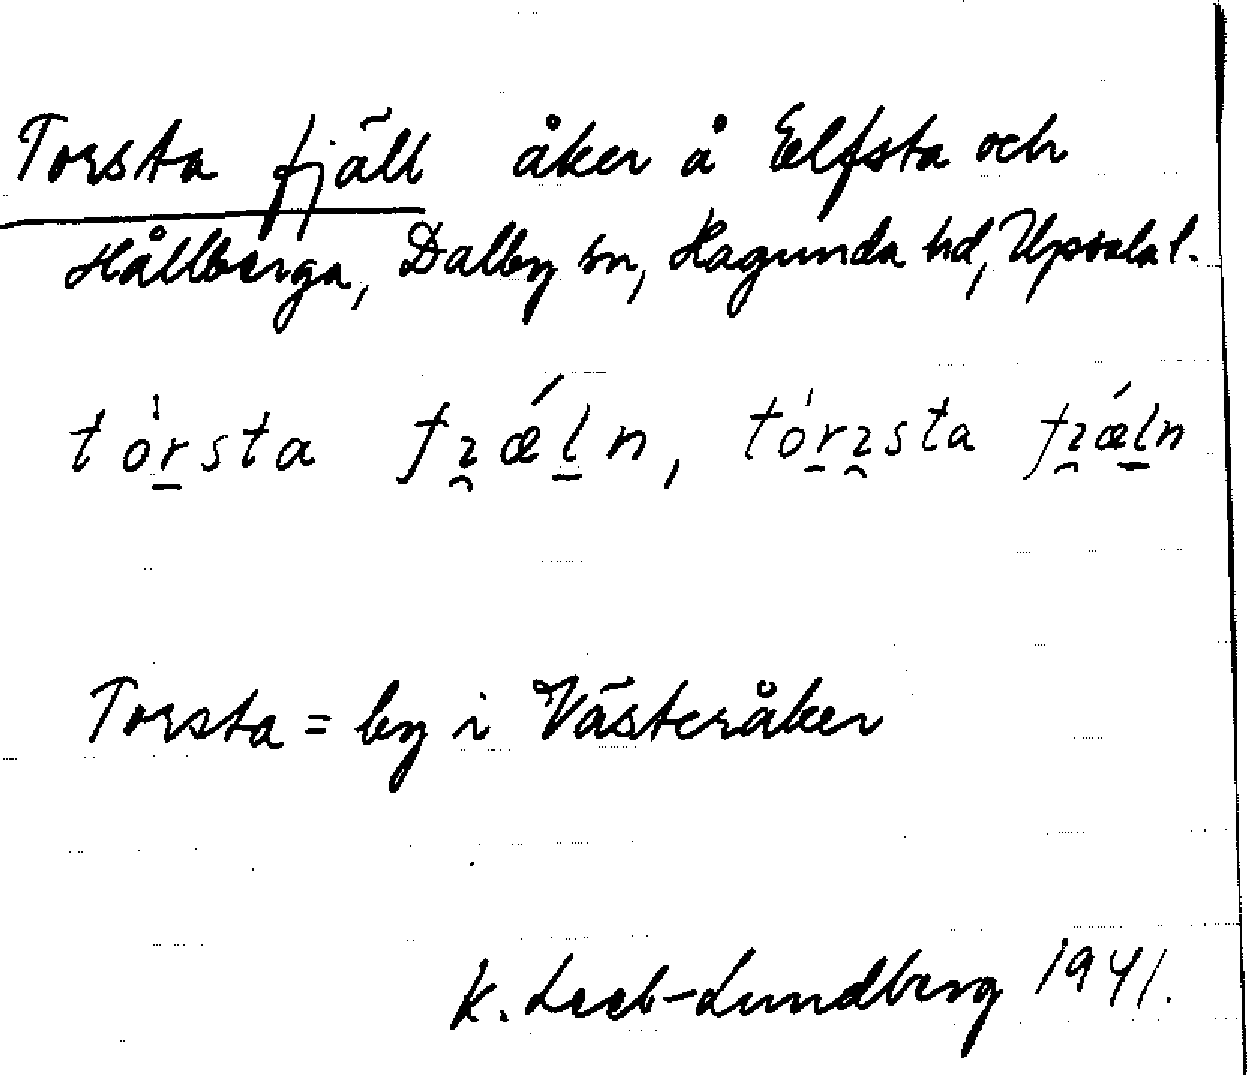 Torsta fjäll åker å Elfsta och
Hållberga, Dalby sn, Hagunda hd, Upsala l.
tó̀r̠sta fɿ̯ǽl̠n, tó̀r̠ɿ̯sta fɿ̯ǽl̠n
Torsta = by i Västeråker
K. Leeb-Lundberg 1941.